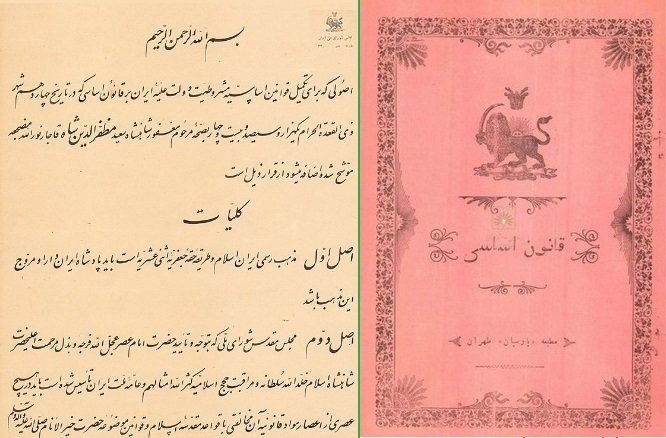 بسم الله الرحمن الرحیم
اصولی که برای تکمیل قوانین اساسیه مشروطیت دولت علیهٔ ایران بر قانون اساسی که در تاریخ چهاردهم شهر
ذی القعدة الحرام یکهزار و سیصد و بیست و چهار بصحهٔ مرحوم مغفور شاهنشاه سعید مظفرالدین شاه قاجار نورالله مضجعه
موشح شده اضافه میشود از قرار ذیل است
کلیات
اصل اول مذهب رسمی ایران اسلام و طریقهٔ حقهٔ جعفریهٔ اثنی عشریه است باید پادشاه ایران دارا و مروج
این مذهب باشد
اصل دوم مجلس مقدس شورای ملی که بتوجه و تایید حضرت امام عصر عجل الله فرجه و بذل مرحمت اعلیحضرت
شاهنشاه اسلام خلد الله سلطانه و مراقبت حجج اسلامیه کثر الله امثالهم و عامهٔ ملت ایران تاسیس شده است باید در هیچ
عصری از اعصار مواد قانونیه آن مخالفتی با قواعد مقدسهٔ اسلام و قوانین موضوعهٔ حضرت خیر الانام صلی الله علیه و آله و سلم
قانون اساسی
مطبعه «پارسیان» طهران